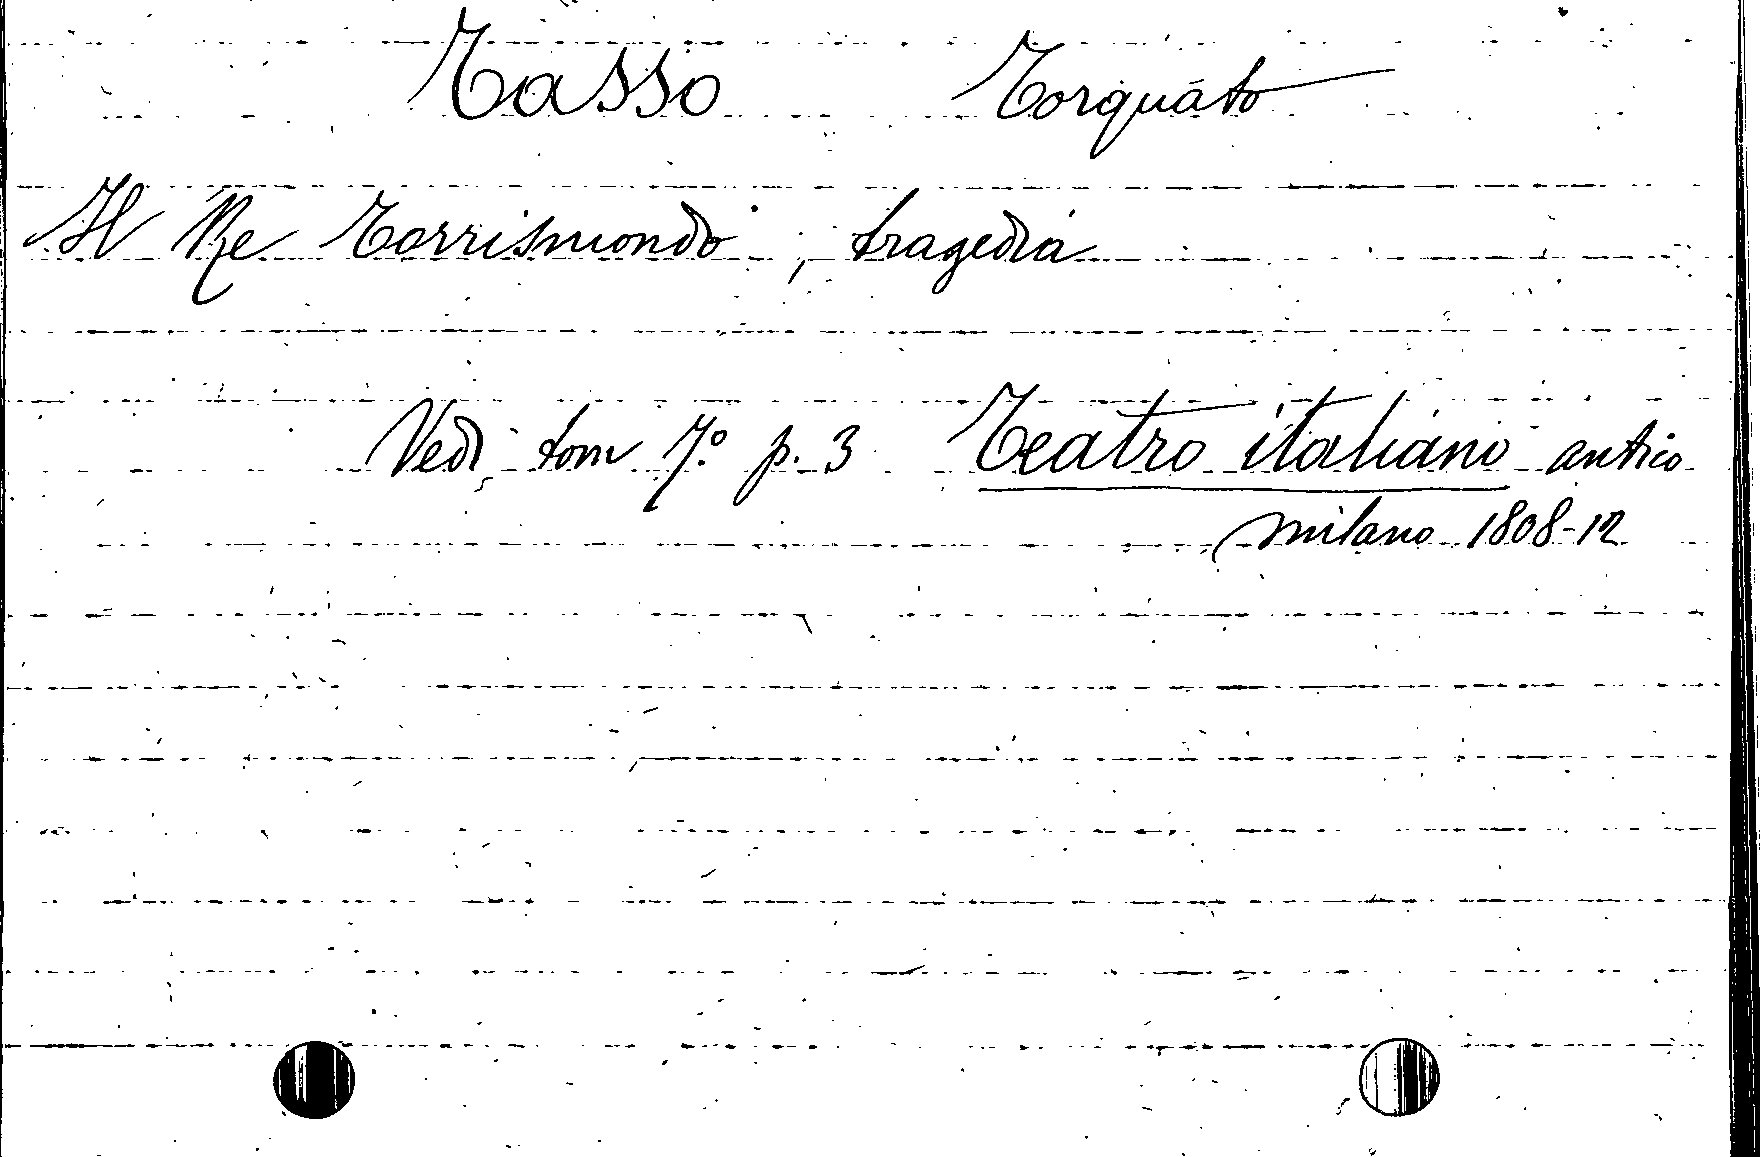 Tasso Torquato
Il Re Torrismondo, tragedia
Vedi tom 7.° p. 3 Teatro italiano antico
Milano 1808-12